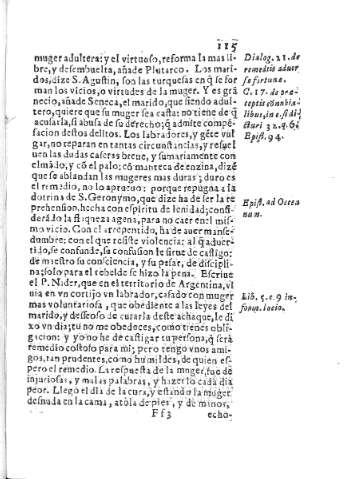 115
muger adultera: y el virtuoso, reforma la mas li-
bre, y desembuelta, añade Plutarco. Los mari-
dos, dize S. Agustin, son las turquesas en q̃ se for
man los vicios, o virtudes de la muger. Y es grã
necio, añade Seneca, el marido, que siendo adul-
tero, quiere que su muger sea casta: no tiene de q̃
acusarla, si abusa de su derecho; q̃ admite compẽ-
sacion destos delitos. Los labradores, y gẽte vul
gar, no reparan en tantas circunstancias, y resuel
uen las dudas caseras breue, y sumariamente con
el mãdo, y cõ el palo; cõ manteca de enzina, dizẽ
que se ablandan las mugeres mas duras; duro es
el remedio, no lo aprueuo: porque repugna a la
dotrina de S. Geronymo, que dize ha de ser la re
prehension, hecha con espiritu de lenidad; consi-
derãdo la flaqueza agena, para no caer en el mis-
mo vicio. Con el arrepentido, ha de auer manse-
dumbre: con el que resiste violencia: al q̃ aduer-
tido, se confunde, su confusion le sirue de castigo:
de maestro su consciencia, y su pesar, de discipli-
na; solo para el rebelde se hizo la pena. Escriue
el P. Nider, que en el territorio de Argentina, vi
uia en vn cortijo vn labrador, casado con muger
mas voluntariosa, que obediente a las leyes del
marido, y desseoso de curarla deste achaque, le di
xo vn dia; tu no me obedeces, como tienes obli-
gacion: y yo no he de castigar tu persona, q̃ serà
remedio costoso para mi; pero tengo vnos ami-
gos, tan prudentes, como humildes, de quien es-
pero el remedio. La respuesta de la muger, fue de
injuriosas, y malas palabras, y hazerlo cada dia
peor. Llegò el dia de la cura, y estando la muger
desnuda en la cama, atòla de pies, y de manos,
Ff3 echo-
Dialog. 21. de
remedijs aduer
se fortunæ.
C. 17. de præ-
ceptis connubia
libus, in c. si di-
cturi 32. q. 6.
Epist. 94.
Epist. ad Ocea
num.
Lib. 5. c. 9 in